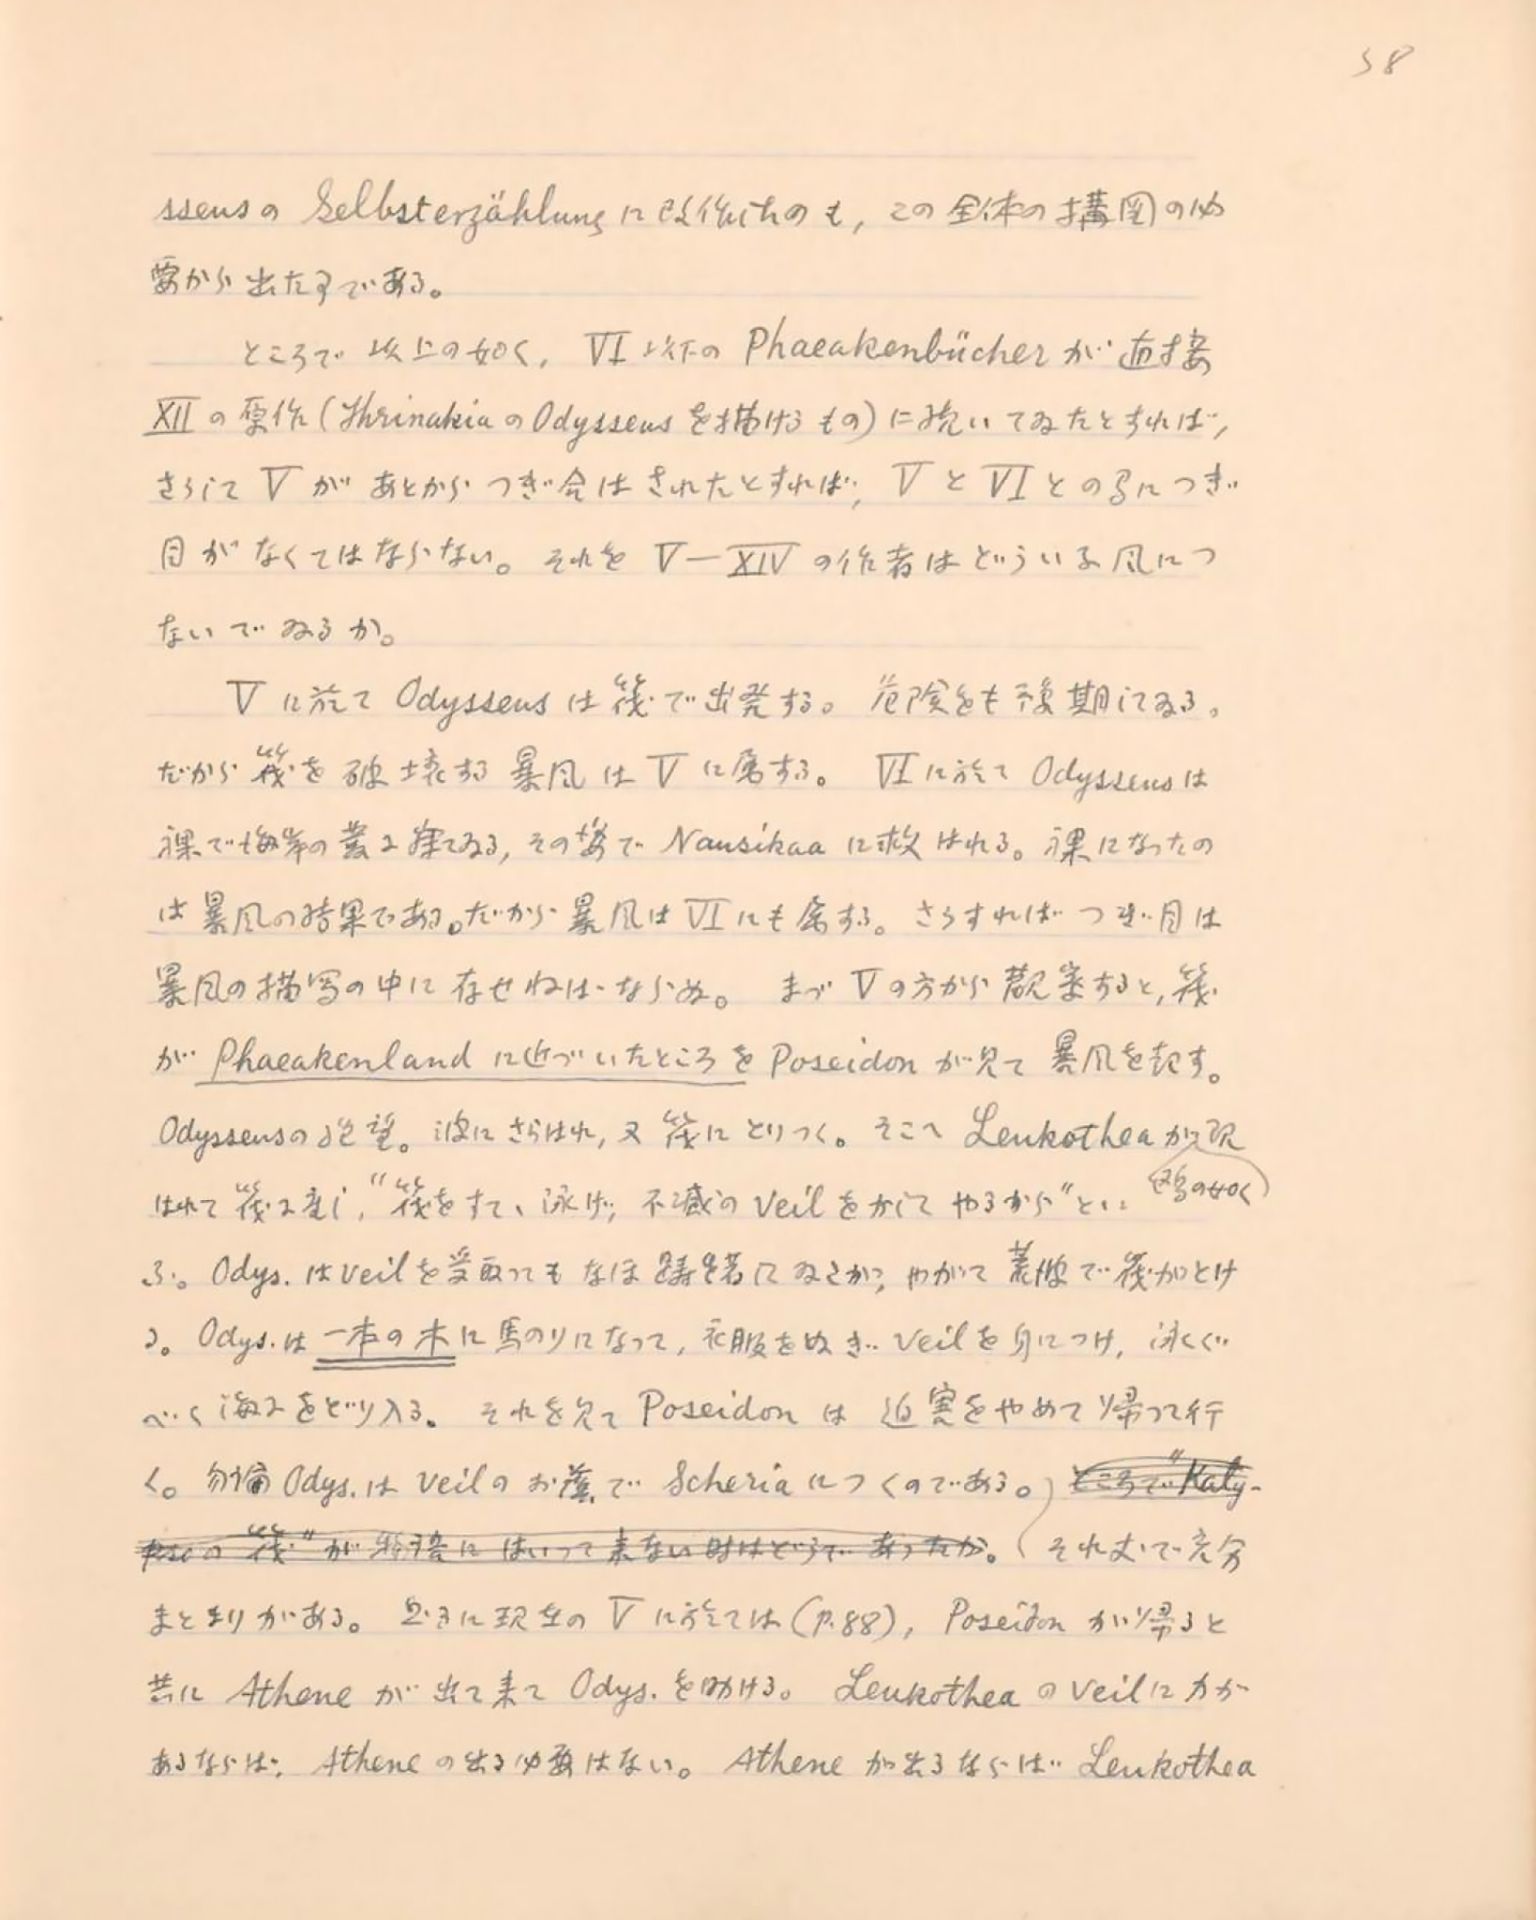 38
sseusの Selbsterzählung に改作したのも, この全体の構図の必
要から出た事である。
ところで以上の如く, VI以下の Phaeakenbücher が直接
XIIの原作(ThrinakiaのOdysseusを描けるもの)に続いてゐたとすれば,
さうして V が あとから つぎ合はされたとすれば, V と VI との間につぎ
目がなくてはならない。それを V—XIV の作者はどういふ風につ
ないでゐるか。
V に於て Odysseus は筏で出発する。危険をも予期してゐる。
だから筏を破壊する暴風は V に属する。VI に於て Odysseusは
裸で海岸の叢に寝てゐる, その姿で Nausikaa に救はれる。裸になったの
は暴風の結果である。だから暴風は VI にも属する。さうすれば つぎ目は
暴風の描写の中に存せねばならぬ。まづ V の方から観察すると, 筏
が Phaeakenland に近づいたところを Poseidon が見て 暴風を起す。
Odysseusの絶望。波にさらはれ, 又筏にとりつく。そこへ Leukothea が現
鴎の如く
はれて筏に座し, “筏をすて、泳げ, 不滅の veil をかしてやるから”とい
ふ。Odys. は veil を受取ってもなほ躊躇してゐるが, やがて荒波で筏がとけ
る。Odys. は 一本の木に馬のりになって, 衣服をぬぎ veil を身につけ, 泳ぐ
べく海にをどり入る。それを見て Poseidon は 迫害をやめて帰って行
く。勿論 Odys. は veil のお蔭で Scheria につくのである。ところで “Kaly-
psoの筏” が物語にはいって来ない時はどうであったか。それ丈で充分
まとまりがある。然るに現在の V に於ては (p.88), Poseidon が帰ると
共に Athene が出て来て Odys. を助ける。Leukothea の veil に力が
あるならば, Athene の出る必要はない。Athene が出るならば Leukothea